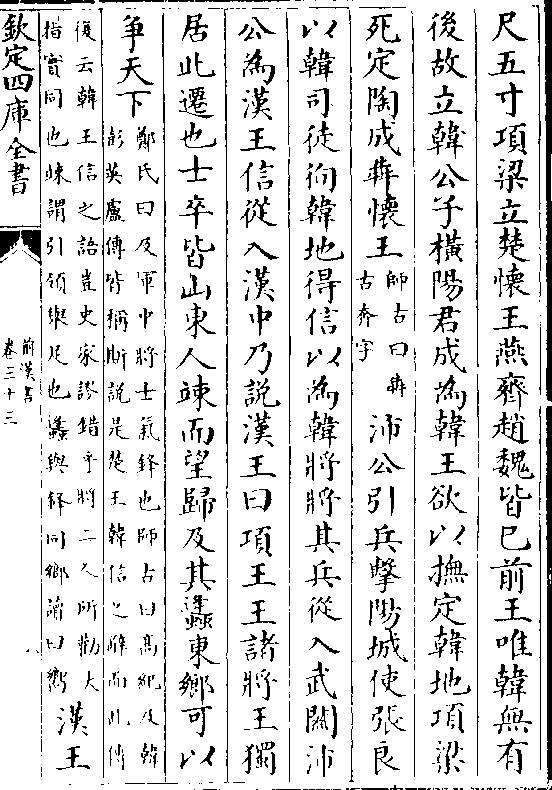 尺五寸項梁立楚懷王燕齊趙魏皆已前王唯韓無有
後故立韓公子橫陽君成為韓王欲以撫定韓地項梁
死定陶成犇懷王
師古曰犇
古奔字
沛公引兵擊陽城使張良
以韓司徒徇韓地得信以為韓將將其兵從入武關沛
公為漢王信從入漢中乃說漢王曰項王王諸將王獨
居此遷也士卒皆山東人竦而望歸及其蠭東鄉可以
爭天下
鄭氏曰及軍中將士氣鋒也師古曰高紀及韓
彭英盧傳皆稱斯說是楚王韓信之辭而此傳
復云韓王信之語豈史家謬錯乎將二人所勸大
指實同也竦謂引領舉足也蠭與鋒同鄉讀曰嚮
漢王
欽定四庫全書
前漢書
卷三十三
八